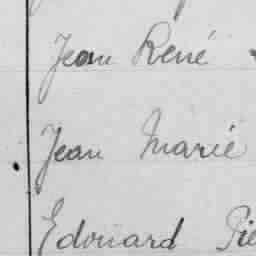 Jean René
Jean Marie
Edouard Pie